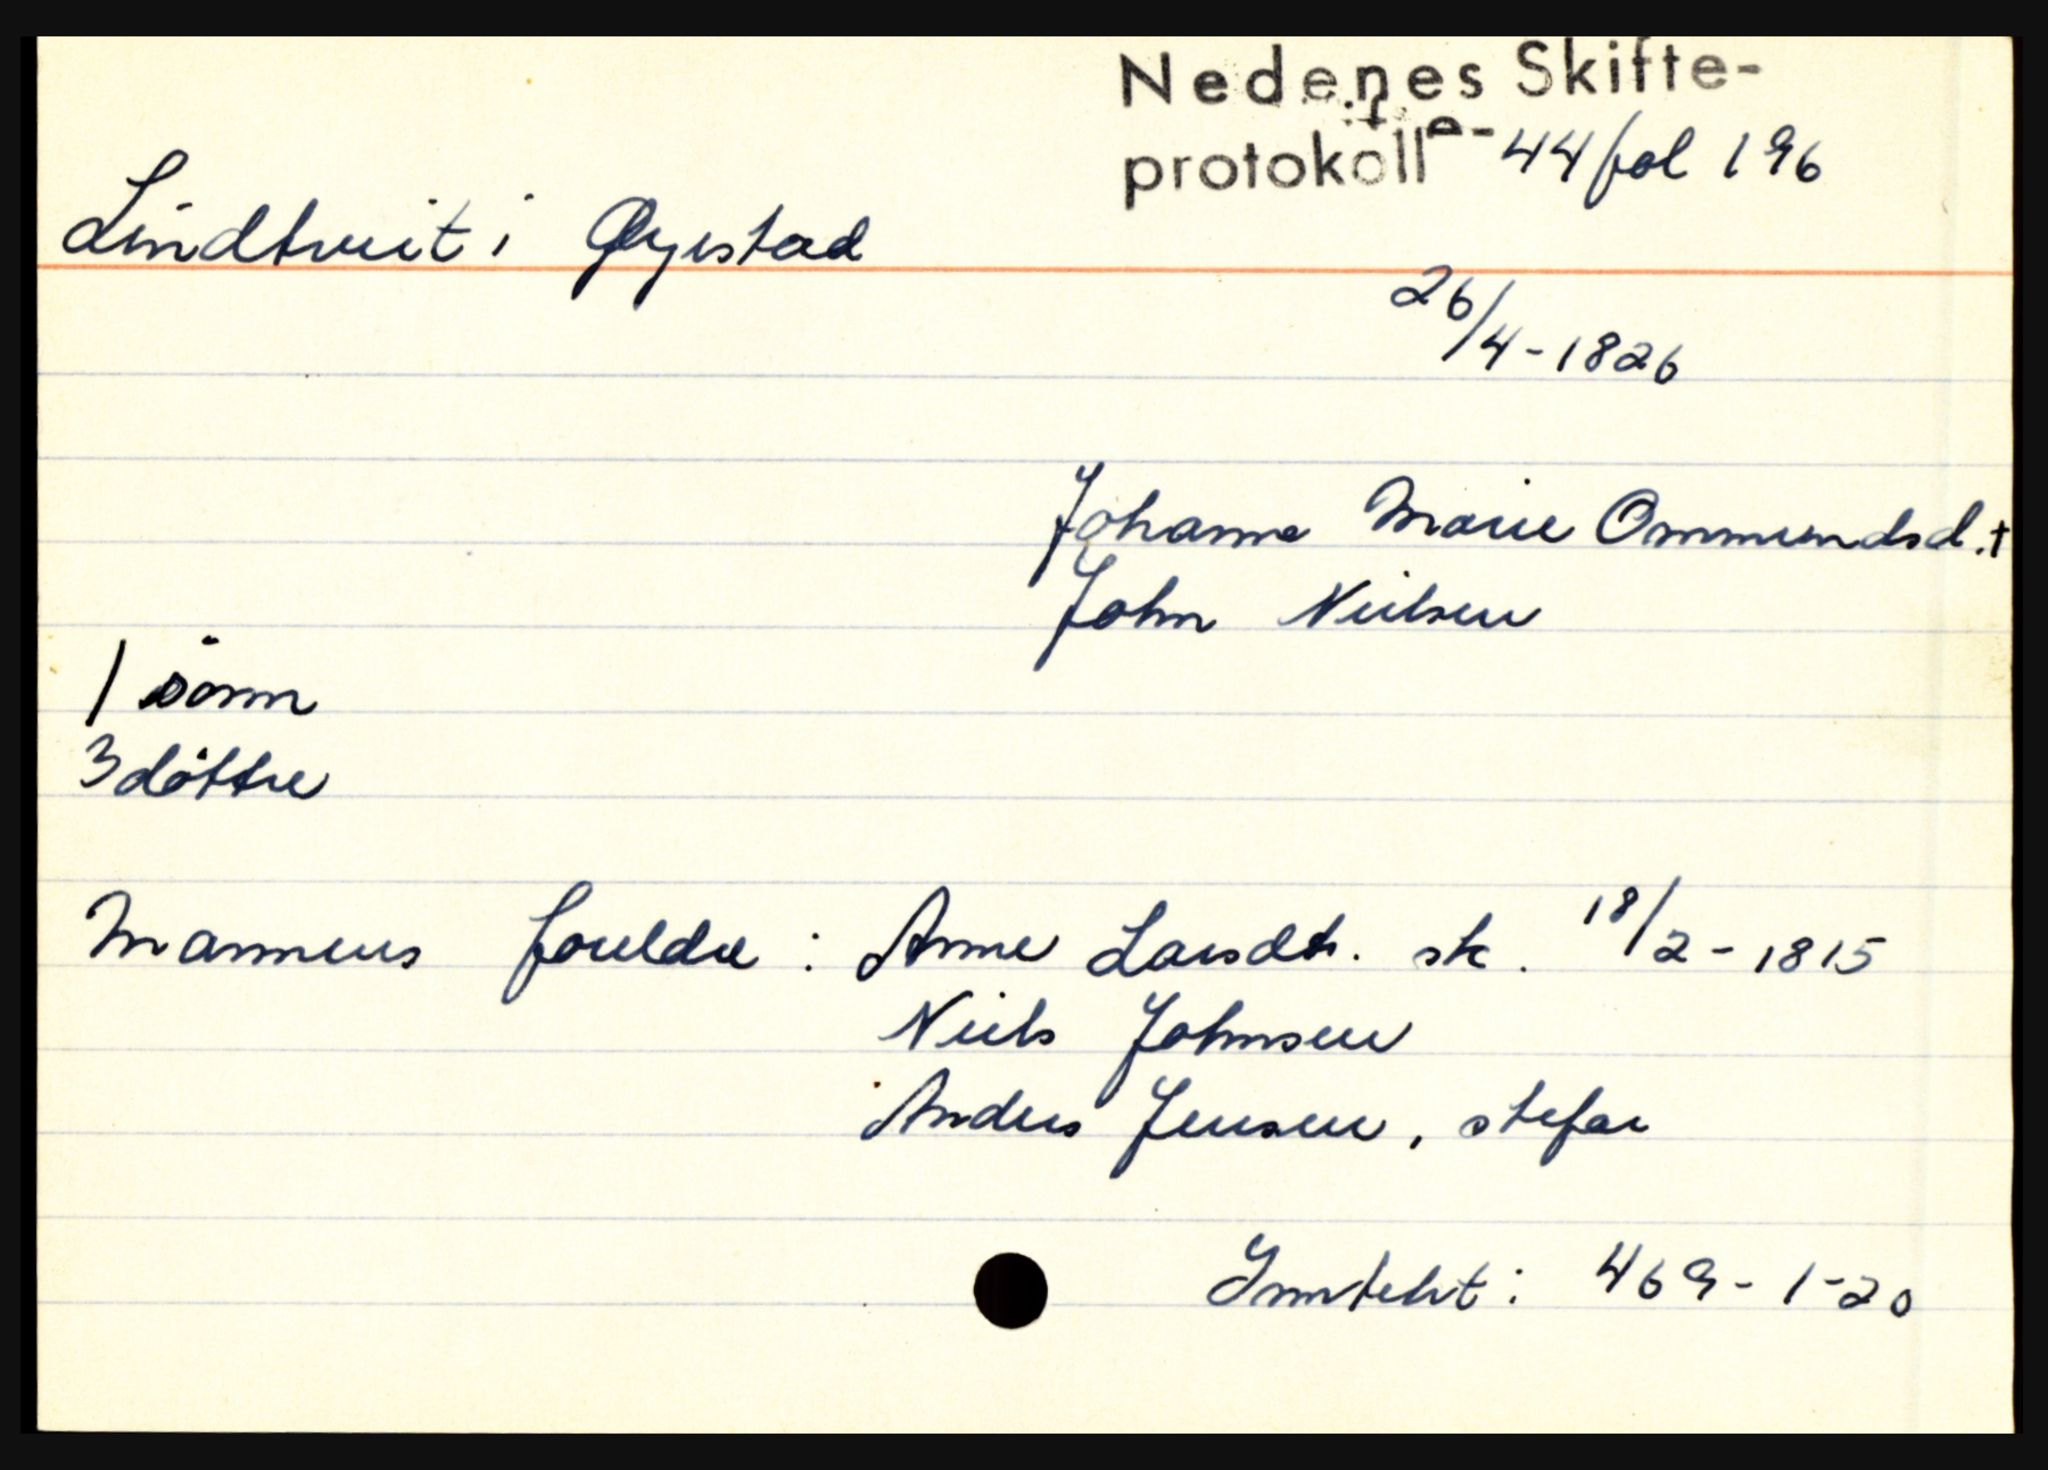 Nedenes Skifte-
protokoll 44 fol 196
Lindtveit i Øyestad
26/4-1826
Johanne Marie Ommundsd. †
John Neilsen
1 sønn
3 døttre
Mannens foreldre: Anne Larsdtr. sk. 18/2-1815
Neils Johnsen
Anders Jensen, stefar
Inntekt: 469-1-20